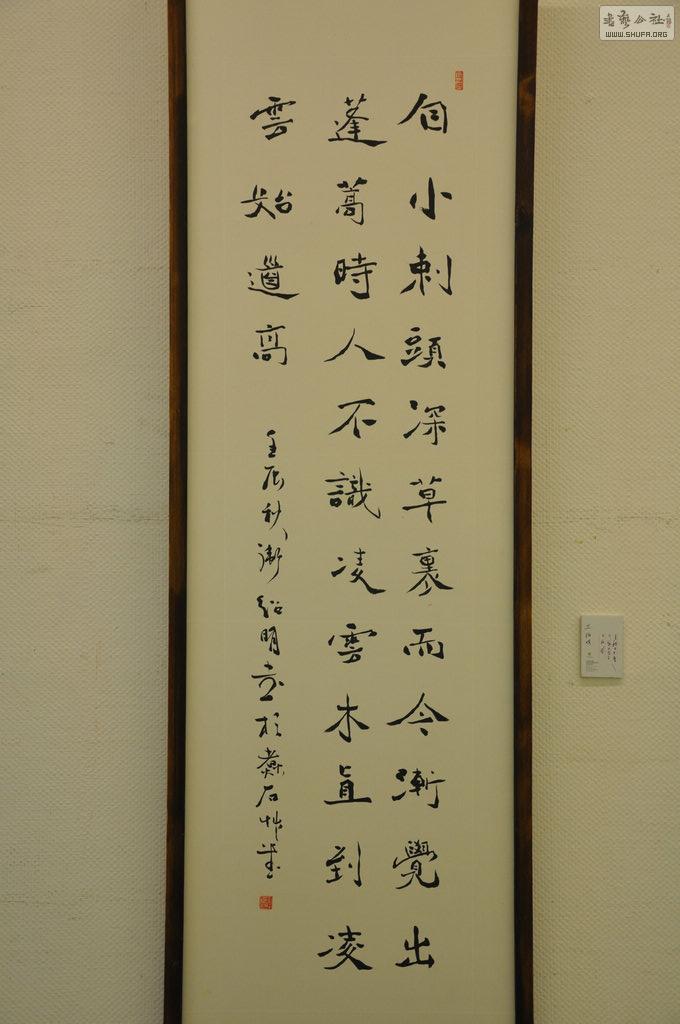 書藝公社
WWW.SHUFA.ORG
自小刺頭深草裏而今漸覺出
蓬蒿時人不識凌雲木直到凌
雲始道高
壬辰秋衛紹明於石艸堂